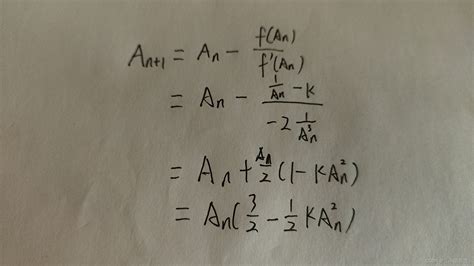 A_{n+1} = A_n - \frac{f(A_n)}{f'(A_n)}
= A_n - \frac{\frac{1}{A_n} - K}{-2\frac{1}{A_n^3}}
= A_n + \frac{A_n}{2}(1 - KA_n^2)
= A_n(\frac{3}{2} - \frac{1}{2}KA_n^2)